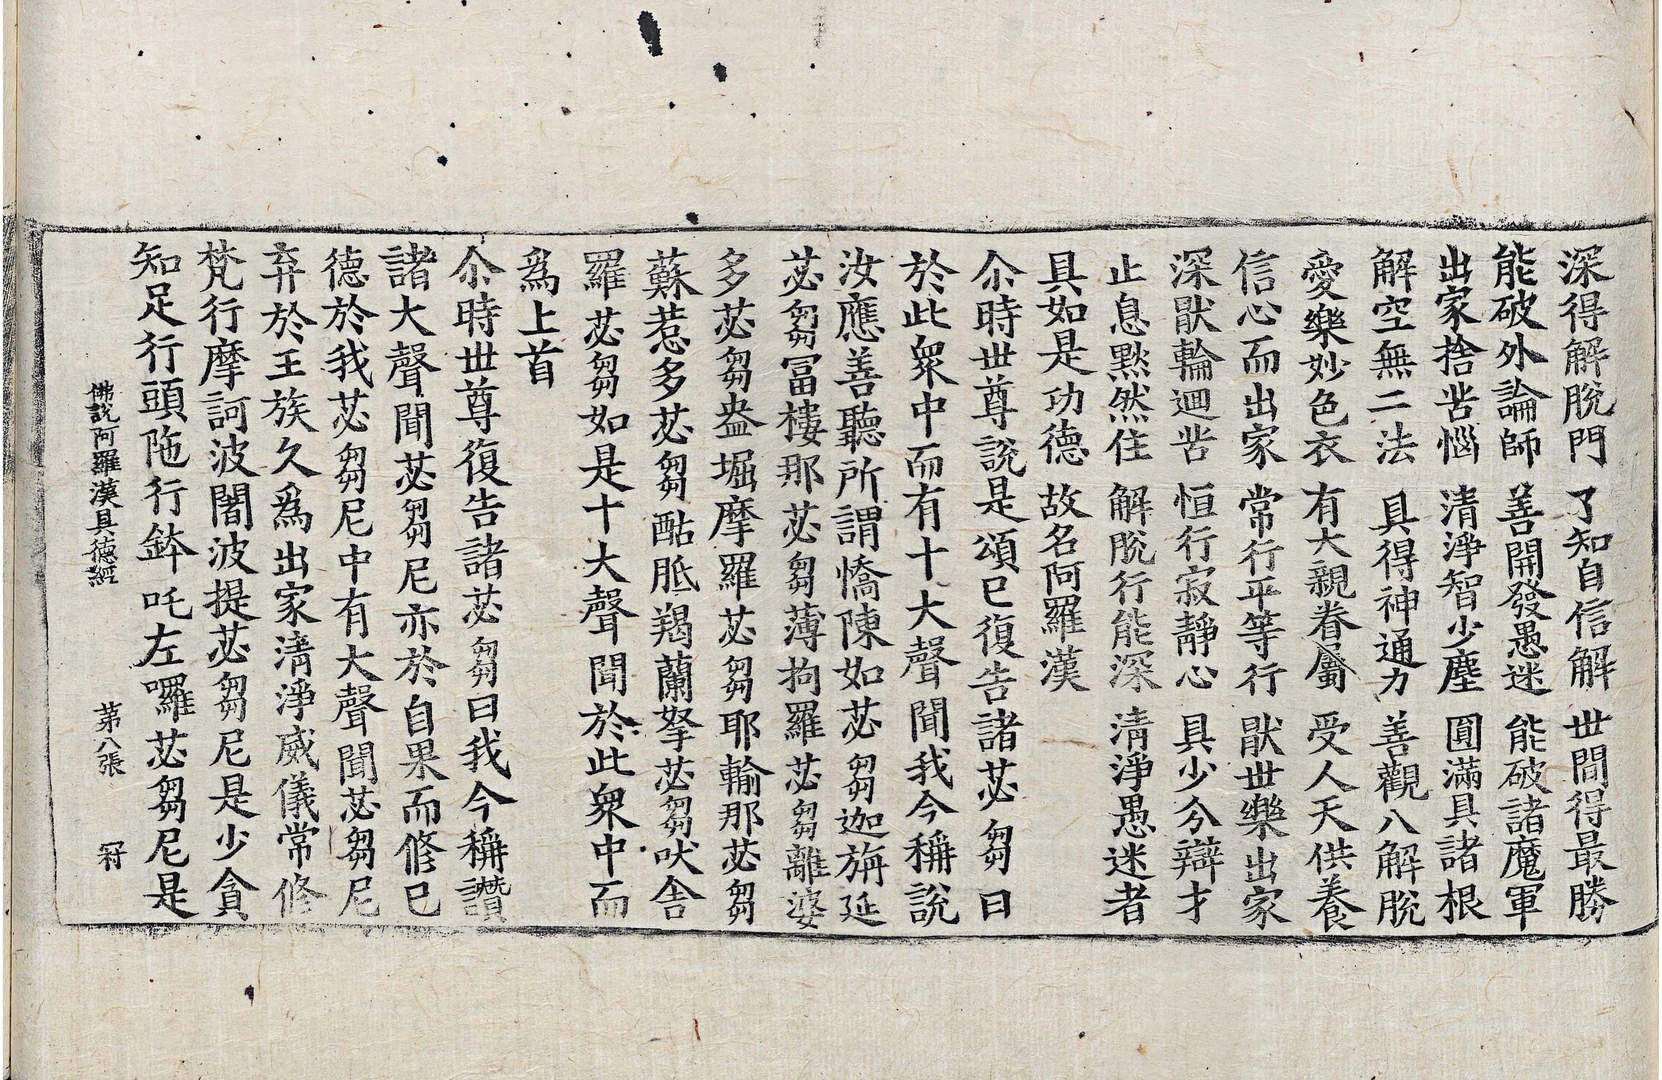 深得解脫門 了知自信解 世間得最勝
能破外論師 善開發愚迷 能破諸魔軍
出家捨苦惱 清淨智少塵 圓滿具諸根
解空無二法 具得神通力 善觀八解脫
愛樂妙色衣 有大親眷屬 受人天供養
信心而出家 常行平等行 猒世樂出家
深猒輪迴苦 恒行寂靜心 具少分辯才
止息默然住 解脫行能深 清淨愚迷者
具如是功德 故名阿羅漢
尒時世尊說是頌已復告諸苾芻曰
於此衆中而有十大聲聞我今稱說
汝應善聽所謂憍陳如苾芻迦旃延
苾芻冨樓那苾芻薄拘羅苾芻離婆
多苾芻央堀摩羅苾芻耶輸那苾芻
蘇惹多苾芻酤胝羯蘭拏苾芻吠舍
羅苾芻如是十大聲聞於此衆中而
爲上首
尒時世尊復告諸苾芻曰我今稱讚
諸大聲聞苾芻尼亦於自果而修已
德於我苾芻尼中有大聲聞苾芻尼
弃於王族久爲出家清淨威儀常修
梵行摩訶波闍波提苾芻尼是少貪
知足行頭陁行鉢吒左囉苾芻尼是
佛說阿羅漢具德經 第八張 冠